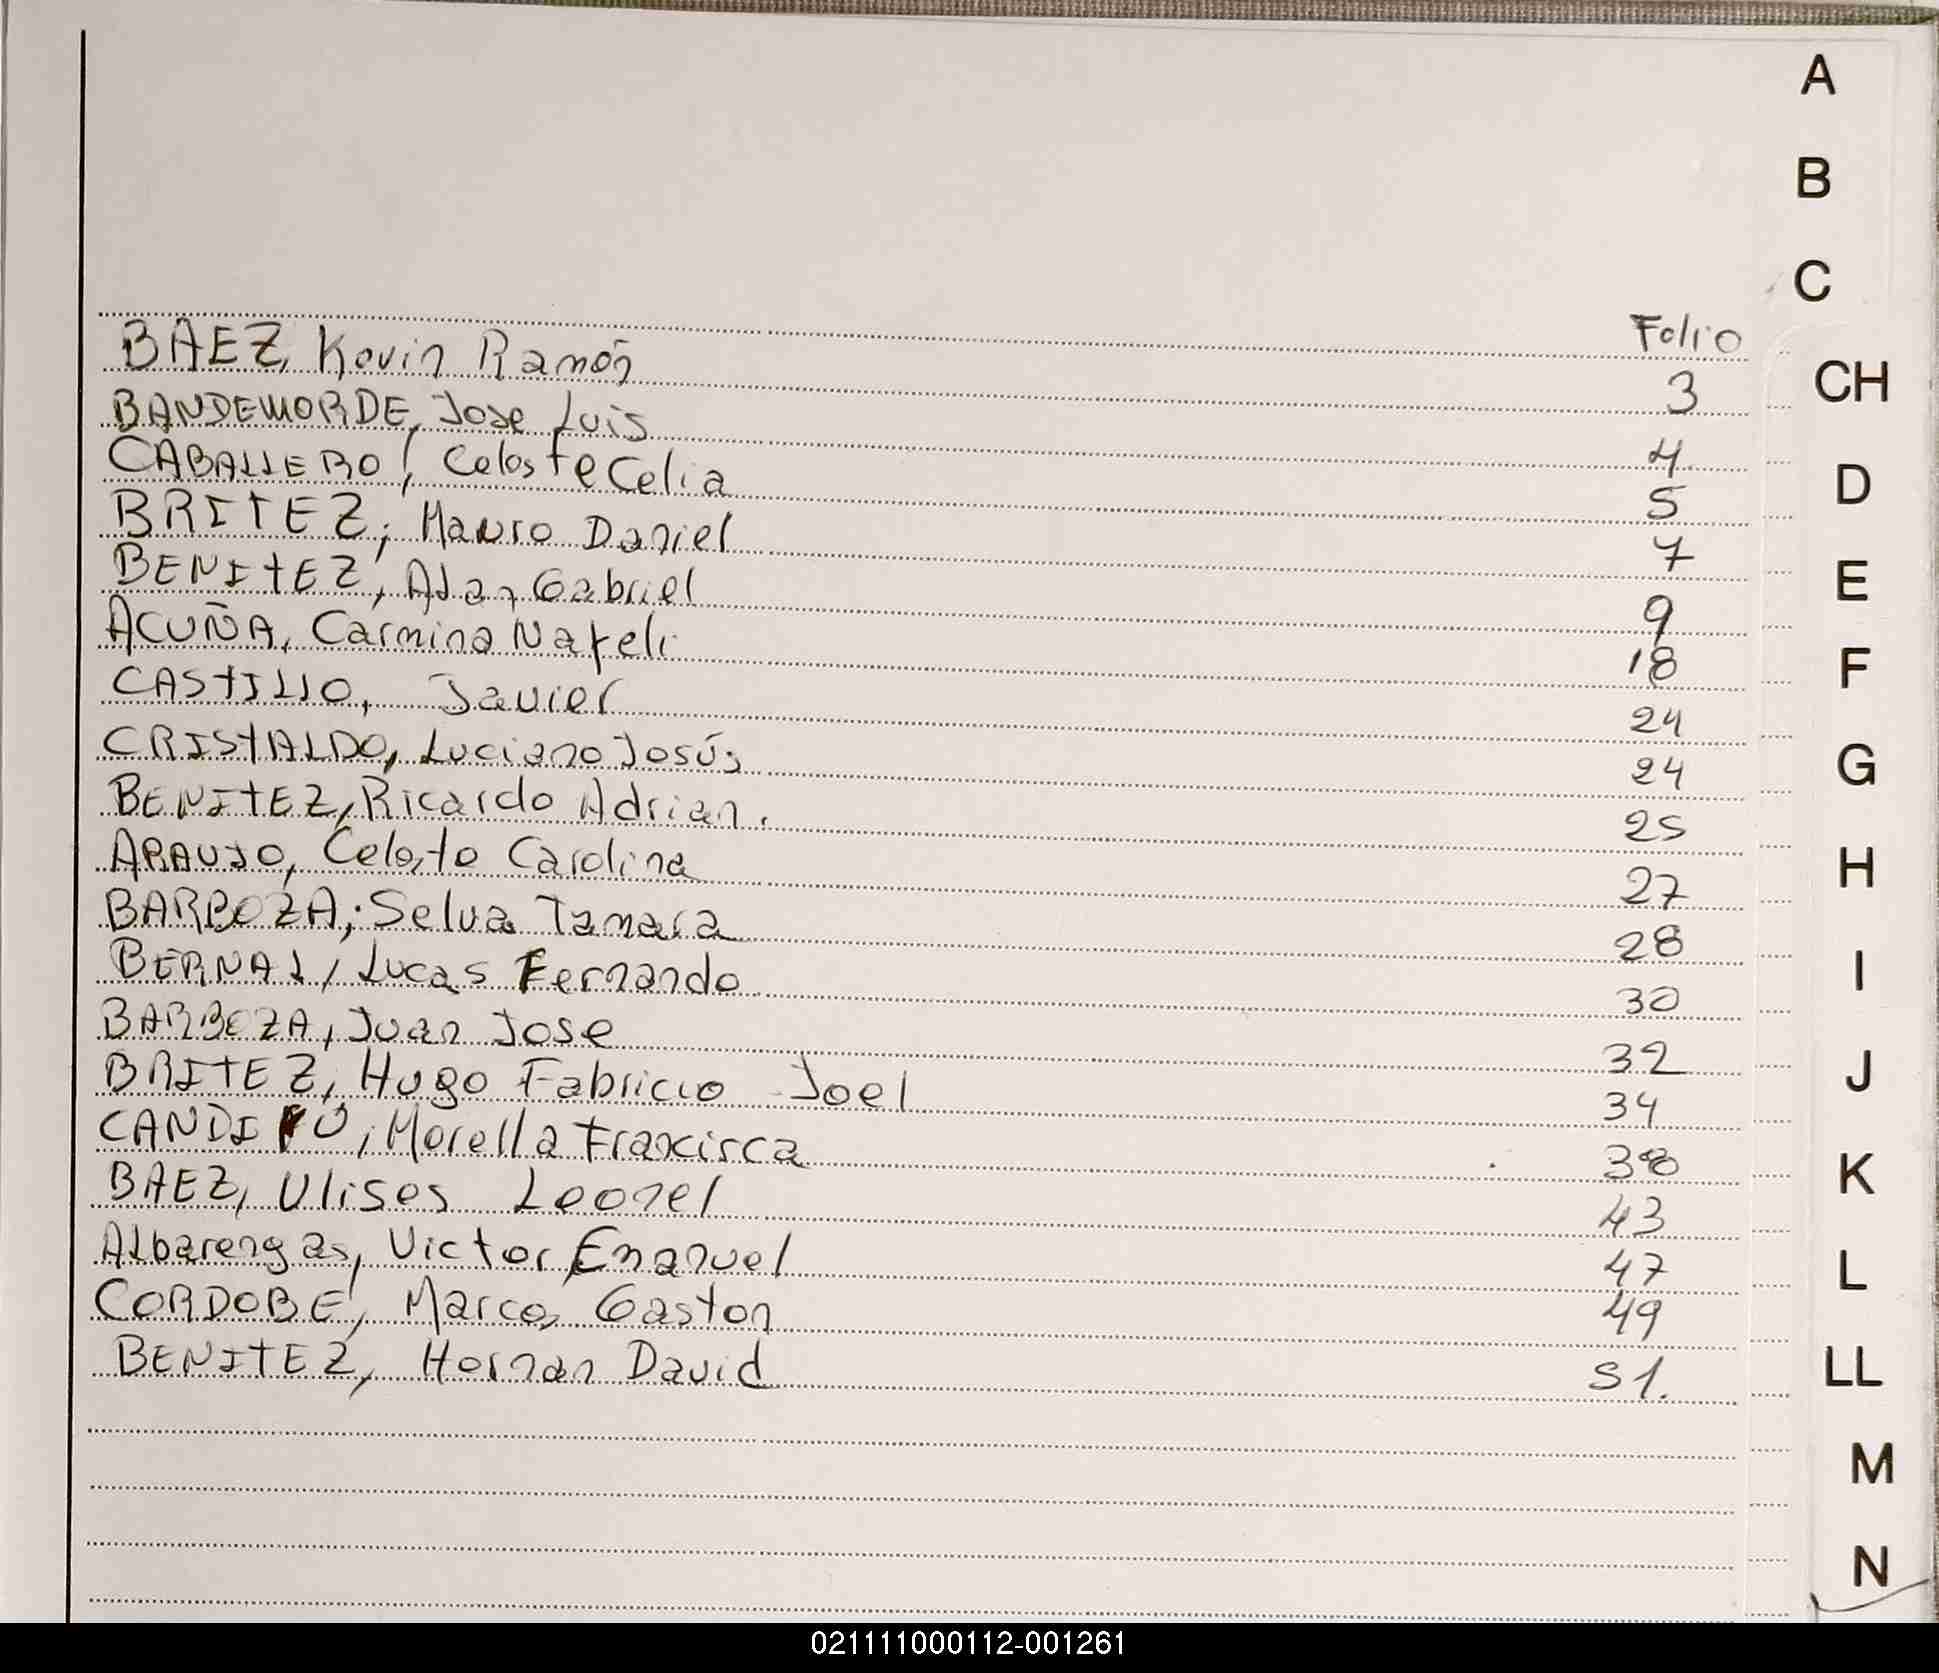 A
B
C
Folio
BAEZ, Kevin Ramón 3
CH
BANDEMORDE, Jose Luis 4
CABALLERO, Celeste Celia 5
D
BRITEZ, Mauro Daniel 7
BENITEZ, Alan Gabriel 9
E
ACUÑA, Carmina Nayeli 18
F
CASTILLO, Javier 24
CRISTALDO, Luciano Jesús 24
G
BENITEZ, Ricardo Adrian. 25
ARAUJO, Celeste Carolina 27
H
BARBOZA, Selva Tamara 28
BERNAL, Lucas Fernando 30
I
BARBOZA, Juan Jose 32
J
BRITEZ, Hugo Fabricio Joel 34
Morella Francisca 38
K
BAEZ, Ulises Leonel 43
Albarengas, Victor Emanuel 47
L
CORDOBE, Marcos Gaston 49
BENITEZ, Hernan David 51.
LL
M
N
021111000112-001261